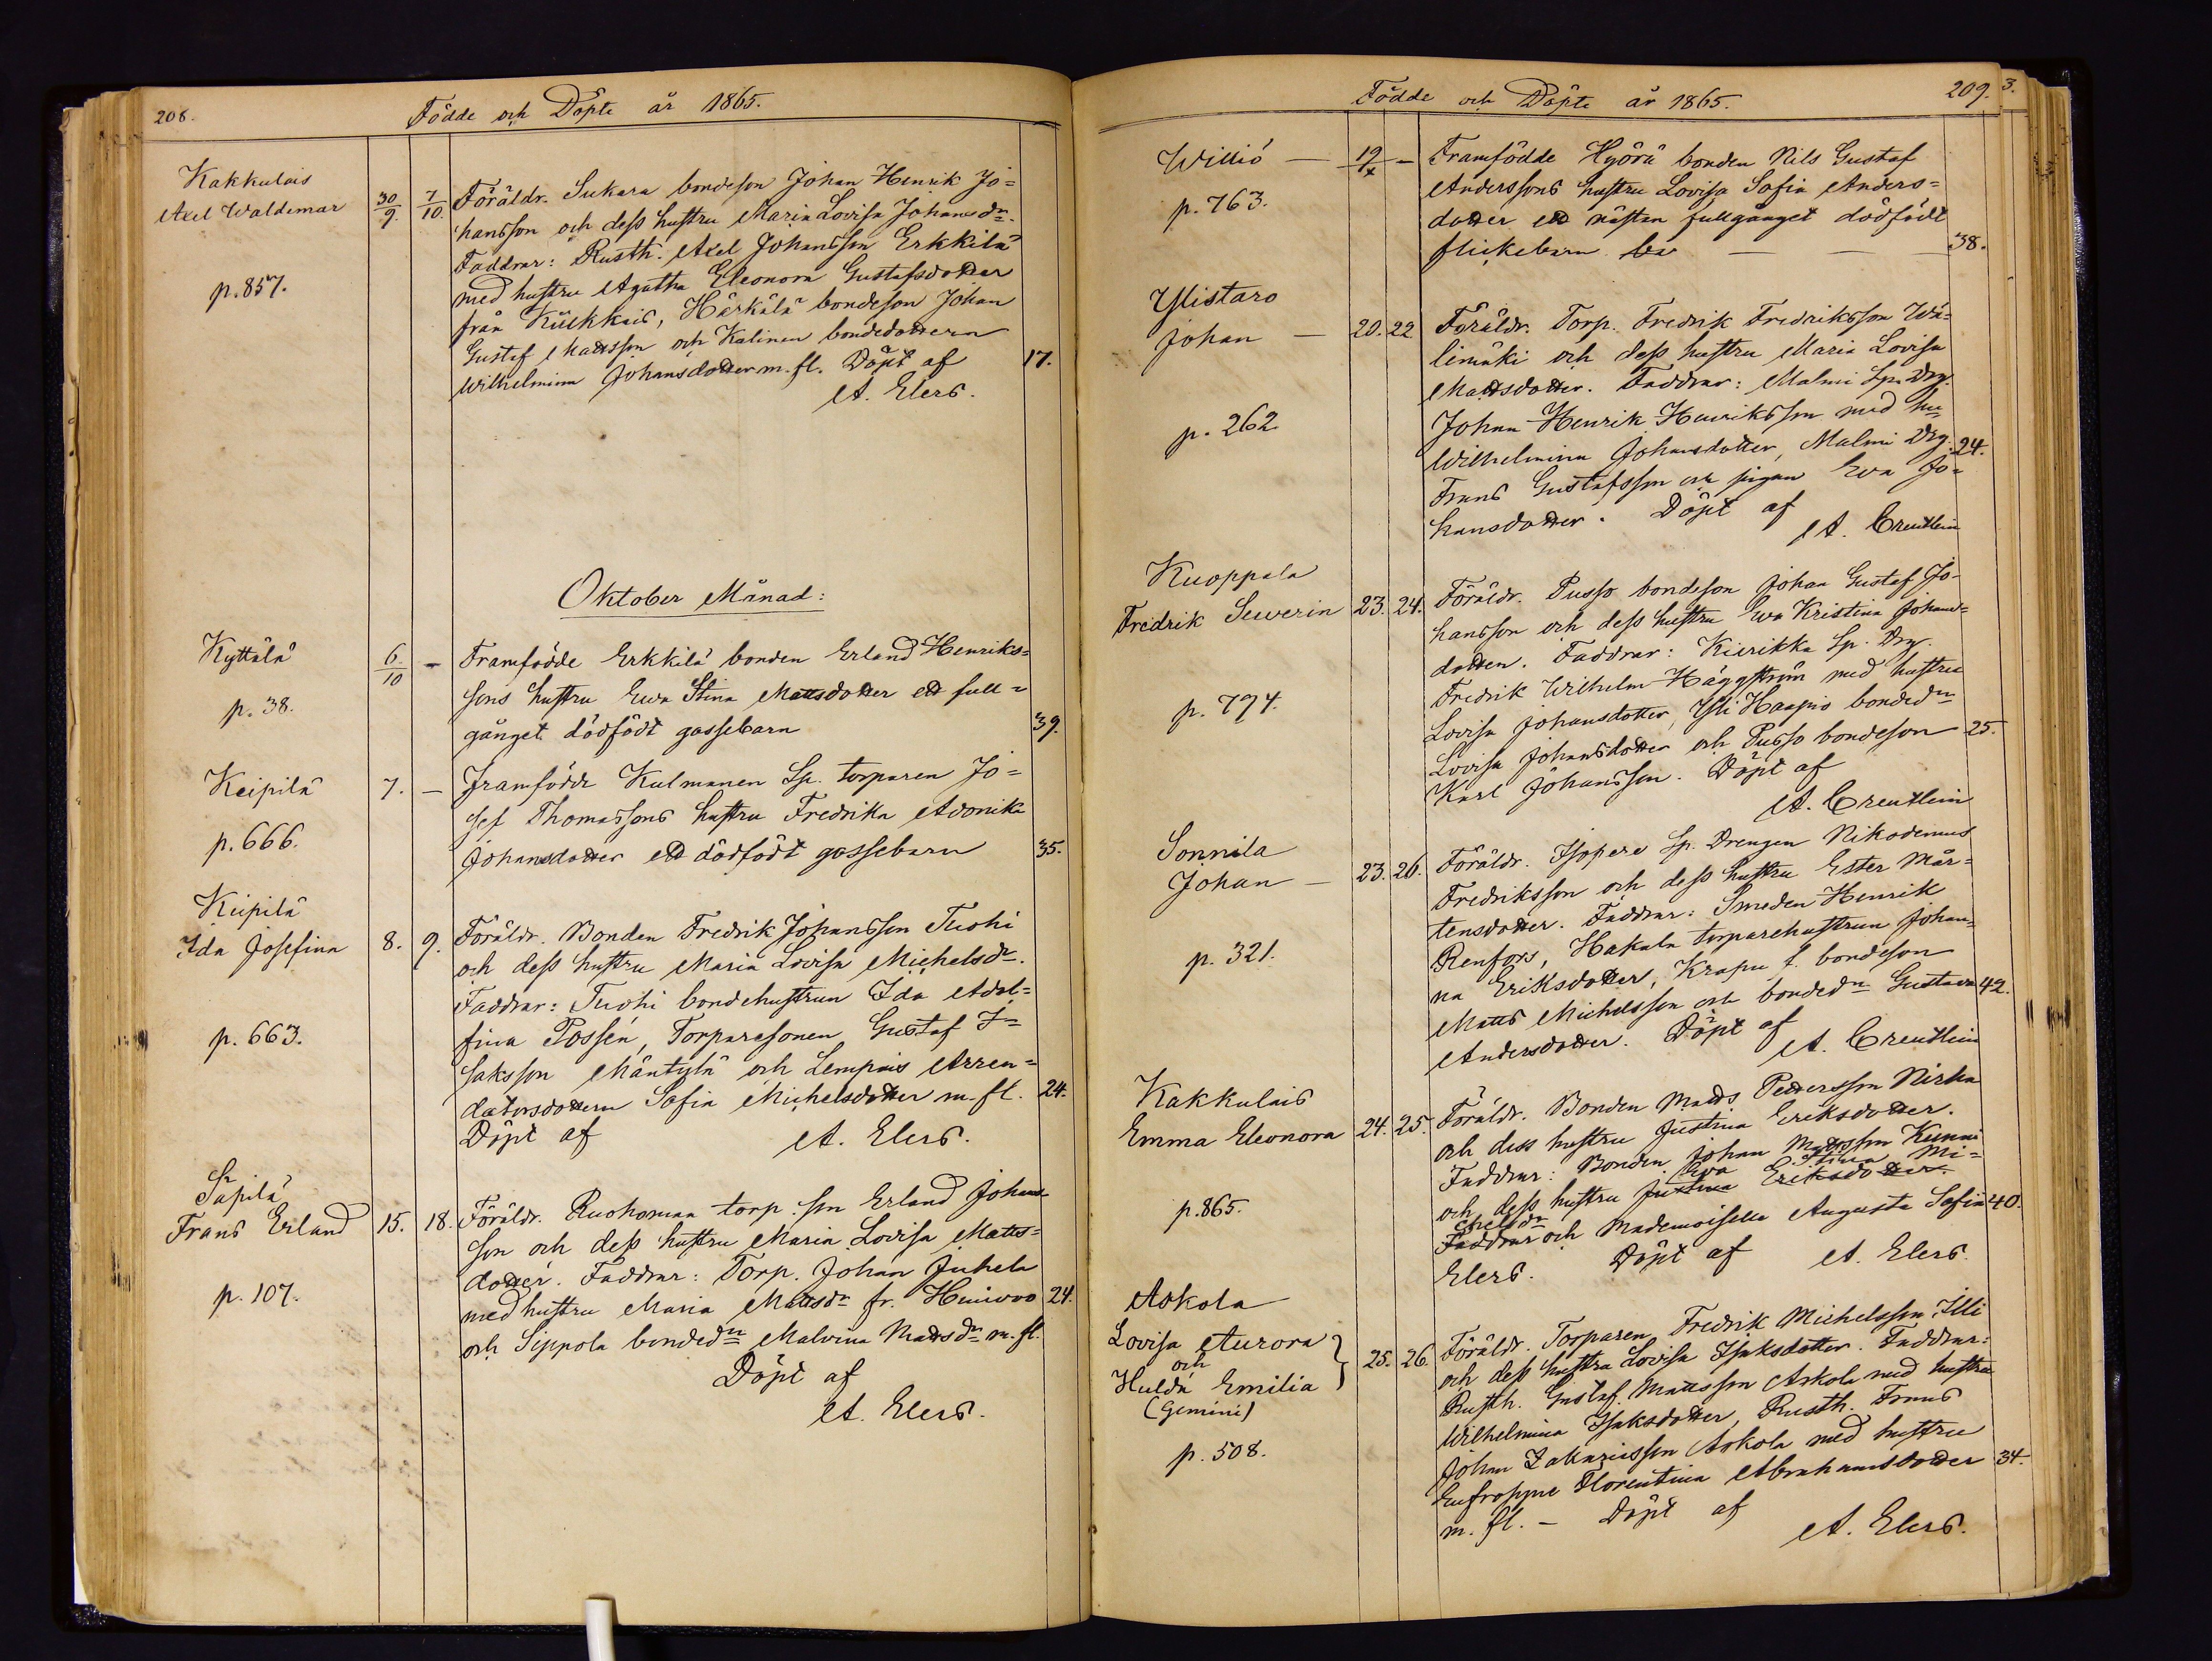 208.
Födde och Döpte år 1865.
Kakkulais
Axel Waldemar
30/9. 7/10.
p. 857.
Föräldr. Sukara bondeson Johan Henrik Jo=
hansson och dess hustru Maria Lovisa Johansdr.
Faddrar: Rusth. Axel Johansson Erkkilä
med hustru Agatha Eleonora Gustafsdotter
från Kiukkais, Härkälä bondeson Johan
Gustaf Mattsson och Kalinen bondedottern
Wilhelmina Johansdotter m. fl. Döpt af
17.
A. Elers.
Oktober Månad:
Kyttälä
6/10 –
p. 38.
Framfödde Erkkilä bonden Erland Henriks=
sons hustru Ewa Stina Mattsdotter ett full=
gånget dödfödt gossebarn
39.
Keipilä
7. –
p. 666.
Framfödde Kulmanen Sp. torparen Jo=
sef Thomassons hustru Fredrika Adonika
Johansdotter ett dödfödt gossebarn
35.
Keipilä
Ida Josefina
8. 9.
p. 663.
Föräldr. Bonden Fredrik Johansson Tuohi
och dess hustru Maria Lovisa Michelsdr.
Faddrar: Tuohi bondehustrun Ida Adol=
fina Possén, Torparesonen Gustaf I=
saksson Mäntylä och Lempois Arren=
datorsdottern Sofia Michelsdotter m. fl.
24.
Döpt af
A. Elers.
Säpilä
Frans Erland
15. 18.
p. 107.
Föräldr. Ruohomaa torp. son Erland Johans=
son och dess hustru Maria Lovisa Matts=
dotter. Faddrar: Torp. Johan Juhela
med hustru Maria Mattsdr fr. Huiwoo
24.
och Sippola bondedn Malwina Mattsdr m. fl.
Döpt af
A. Elers.
Födde och Döpte år 1865.
209.
3.
Williö –
19/x –
p. 763.
Framfödde Hyörä bonden Nils Gustaf
Anderssons hustru Lovisa Sofia Anders=
dotter ett nästan fullgånget dödfödt
flickebarn
38.
Ylistaro
Johan –
20. 22
p. 262
Föräldr. Torp. Fredrik Fredriksson Wä=
limäki och dess hustru Maria Lovisa
Mattsdotter. Faddrar: Malmi Sp. Drg.
Johan Henrik Henriksson med hu
Wilhelmina Johansdotter, Malmi Drg.
24.
Frans Gustafsson och pigan Ewa Jo=
hansdotter. Döpt af
A. Creutlein
Kuoppala
Fredrik Sewerin
23. 24.
p. 794.
Föräldr. Pusso bondeson Johan Gustaf Jo-
hansson och dess hustru Ewa Kristina Johans=
dotter. Faddrar: Kiirikka Sp. Drg.
Fredrik Wilhelm Häggström med hustru
Lovisa Johansdotter, Yli Haapio bondedn
Lovisa Johansdotter och Pusso bondeson
25.
Karl Johansson. Döpt af
A. Creutlein
Sonnila
Johan –
23. 26.
p. 321.
Föräldr. Isopere Sp. Drengen Nikodemus
Fredriksson och dess hustru Ester Mår=
tensdotter. Faddrar: Smeden Henrik
Renfors, Hakala torparehustrun Johan=
na Eriksdotter, Krapu f. bondeson
Matts Michelsson och bondedn Gustava
42.
Andersdotter. Döpt af
A. Creutlein
Kakkulais
Emma Eleonora
24. 25.
p. 865.
Föräldr. Bonden Matts Pettersson Nirka
och dess hustru Justina Eriksdotter.
Faddrar: Bonden Johan Mattsson Kunni
Ewa Stina Mi=
och dess hustru Justina Eriksdotter.
chelsdr
Faddrar och Mademoiselle Augusta Sofia
40.
Elers. Döpt af A. Elers.
Askola
Lovisa Aurora
och
Hulda Emilia
(Gemini)
25. 26.
p. 508.
Föräldr. Torparen Fredrik Michelsson Illi
och dess hustru Lovisa Isaksdotter. Faddrar:
Rusth. Gustaf Mattsson Askola med hustru
Wilhelmina Isaksdotter, Rusth. Frans
Johan Zakariasson Askola med hustru
Eufrosyne Florentina Abrahamsdotter
34.
m. fl. – Döpt af
A. Elers.